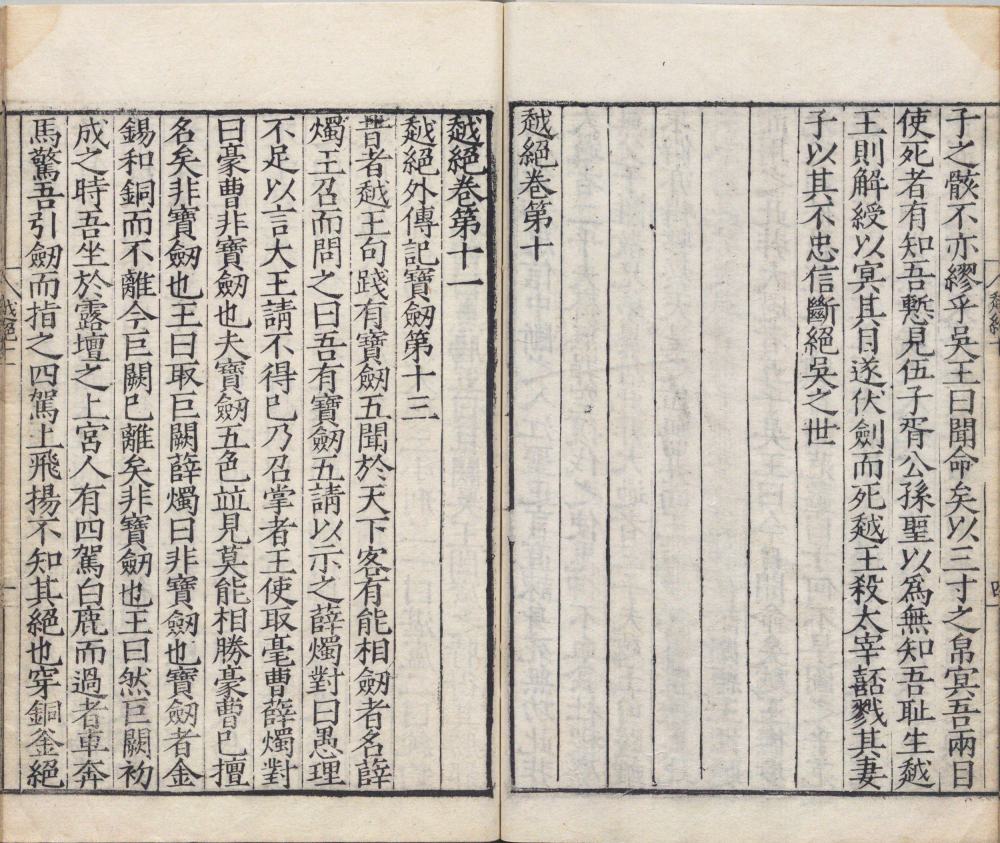 子之骸不亦繆乎吳王曰聞命矣以三寸之帛冥吾兩目
使死者有知吾慙見伍子胥公孫聖以爲無知吾恥生越
王則解綬以冥其目遂伏劍而死越王殺太宰嚭戮其妻
子以其不忠信斷絕吳之世
越絕卷第十
越絕卷第十一
越絕外傳記寶劒第十三
昔者越王句踐有寶劒五聞於天下客有能相劒者名薛
燭王召而問之曰吾有寶劒五請以示之薛燭對曰愚理
不足以言大王請不得已乃召掌者王使取毫曹薛燭對
曰豪曹非寶劒也夫寶劒五色並見莫能相勝豪曹已擅
名矣非寶劒也王曰取巨闕薛燭曰非寶劒也寶劒者金
錫和銅而不離今巨闕已離矣非寶劒也王曰然巨闕初
成之時吾坐於露壇之上宮人有四駕白鹿而過者車奔
馬驚吾引劒而指之四駕上飛揚不知其絕也穿銅釜絕
越絕十
四
越絕十一
一